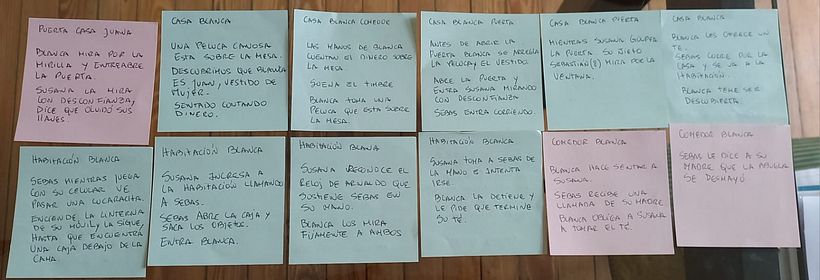 PUERTA CASA JUANA
BLANCA MIRA POR LA
MIRILLA Y ENTREABRE
LA PUERTA.
SUSANA LA MIRA
CON DESCONFIANZA,
DICE QUE OLVIDÓ SUS
LLAVES.
CASA BLANCA
UNA PELUCA CANOSA
ESTA SOBRE LA MESA.
DESCUBRIMOS QUE BLANCA
ES JUAN, VESTIDO DE
MUJER.
SENTADO CONTANDO
DINERO.
CASA BLANCA COMEDOR
LAS MANOS DE BLANCA
CUENTAN EL DINERO SOBRE
LA MESA.
SUENA EL TIMBRE
BLANCA TOMA UNA
PELUCA QUE ESTA SOBRE
LA MESA.
CASA BLANCA PUERTA
ANTES DE ABRIR LA
PUERTA BLANCA SE ARREGLA
LA PELUCA, EL VESTIDO.
ABRE LA PUERTA Y
ENTRA SUSANA MIRANDO
CON DESCONFIANZA
SEBAS ENTRA CORRIENDO.
CASA BLANCA PUERTA
MIENTRAS SUSANA GOLPEA
LA PUERTA SU NIETO
SEBASTIÁN (8) MIRA POR LA
VENTANA.
CASA BLANCA
BLANCA LES OFRECE UN
TÉ.
SEBAS CORRE POR LA
CASA Y SE VA A LA
HABITACIÓN.
BLANCA TEME SER
DESCUBIERTA.
HABITACIÓN BLANCA
SEBAS MIENTRAS JUEGA
CON SU CELULAR VE
PASAR UNA CUCARACHA.
ENCIENDE LA LINTERNA
DE SU MÓVIL Y LA SIGUE,
HASTA QUE ENCUENTRA
UNA CAJA DEBAJO DE LA
CAMA.
HABITACIÓN BLANCA
SUSANA INGRESA A
LA HABITACIÓN LLAMANDO
A SEBAS.
SEBAS ABRE LA CAJA Y
SACA LOS OBJETOS.
ENTRA BLANCA.
HABITACIÓN BLANCA
SUSANA RECONOCE EL
RELOJ DE ARNALDO QUE
SOSTIENE SEBAS EN
SU MANO.
BLANCA LOS MIRA
FIJAMENTE A AMBOS
HABITACIÓN BLANCA
SUSANA TOMA A SEBAS DE
LA MANO E INTENTA
IRSE.
BLANCA LA DETIENE Y
LE PIDE QUE TERMINE
SU TÉ.
COMEDOR BLANCA
BLANCA HACE SENTAR A
SUSANA.
SEBAS RECIBE UNA
LLAMADA DE SU MADRE
BLANCA OBLIGA A SUSANA
A TOMAR EL TÉ.
COMEDOR BLANCA
SEBAS LE DICE A SU
MADRE QUE LA ABUELA
SE DESMAYÓ.